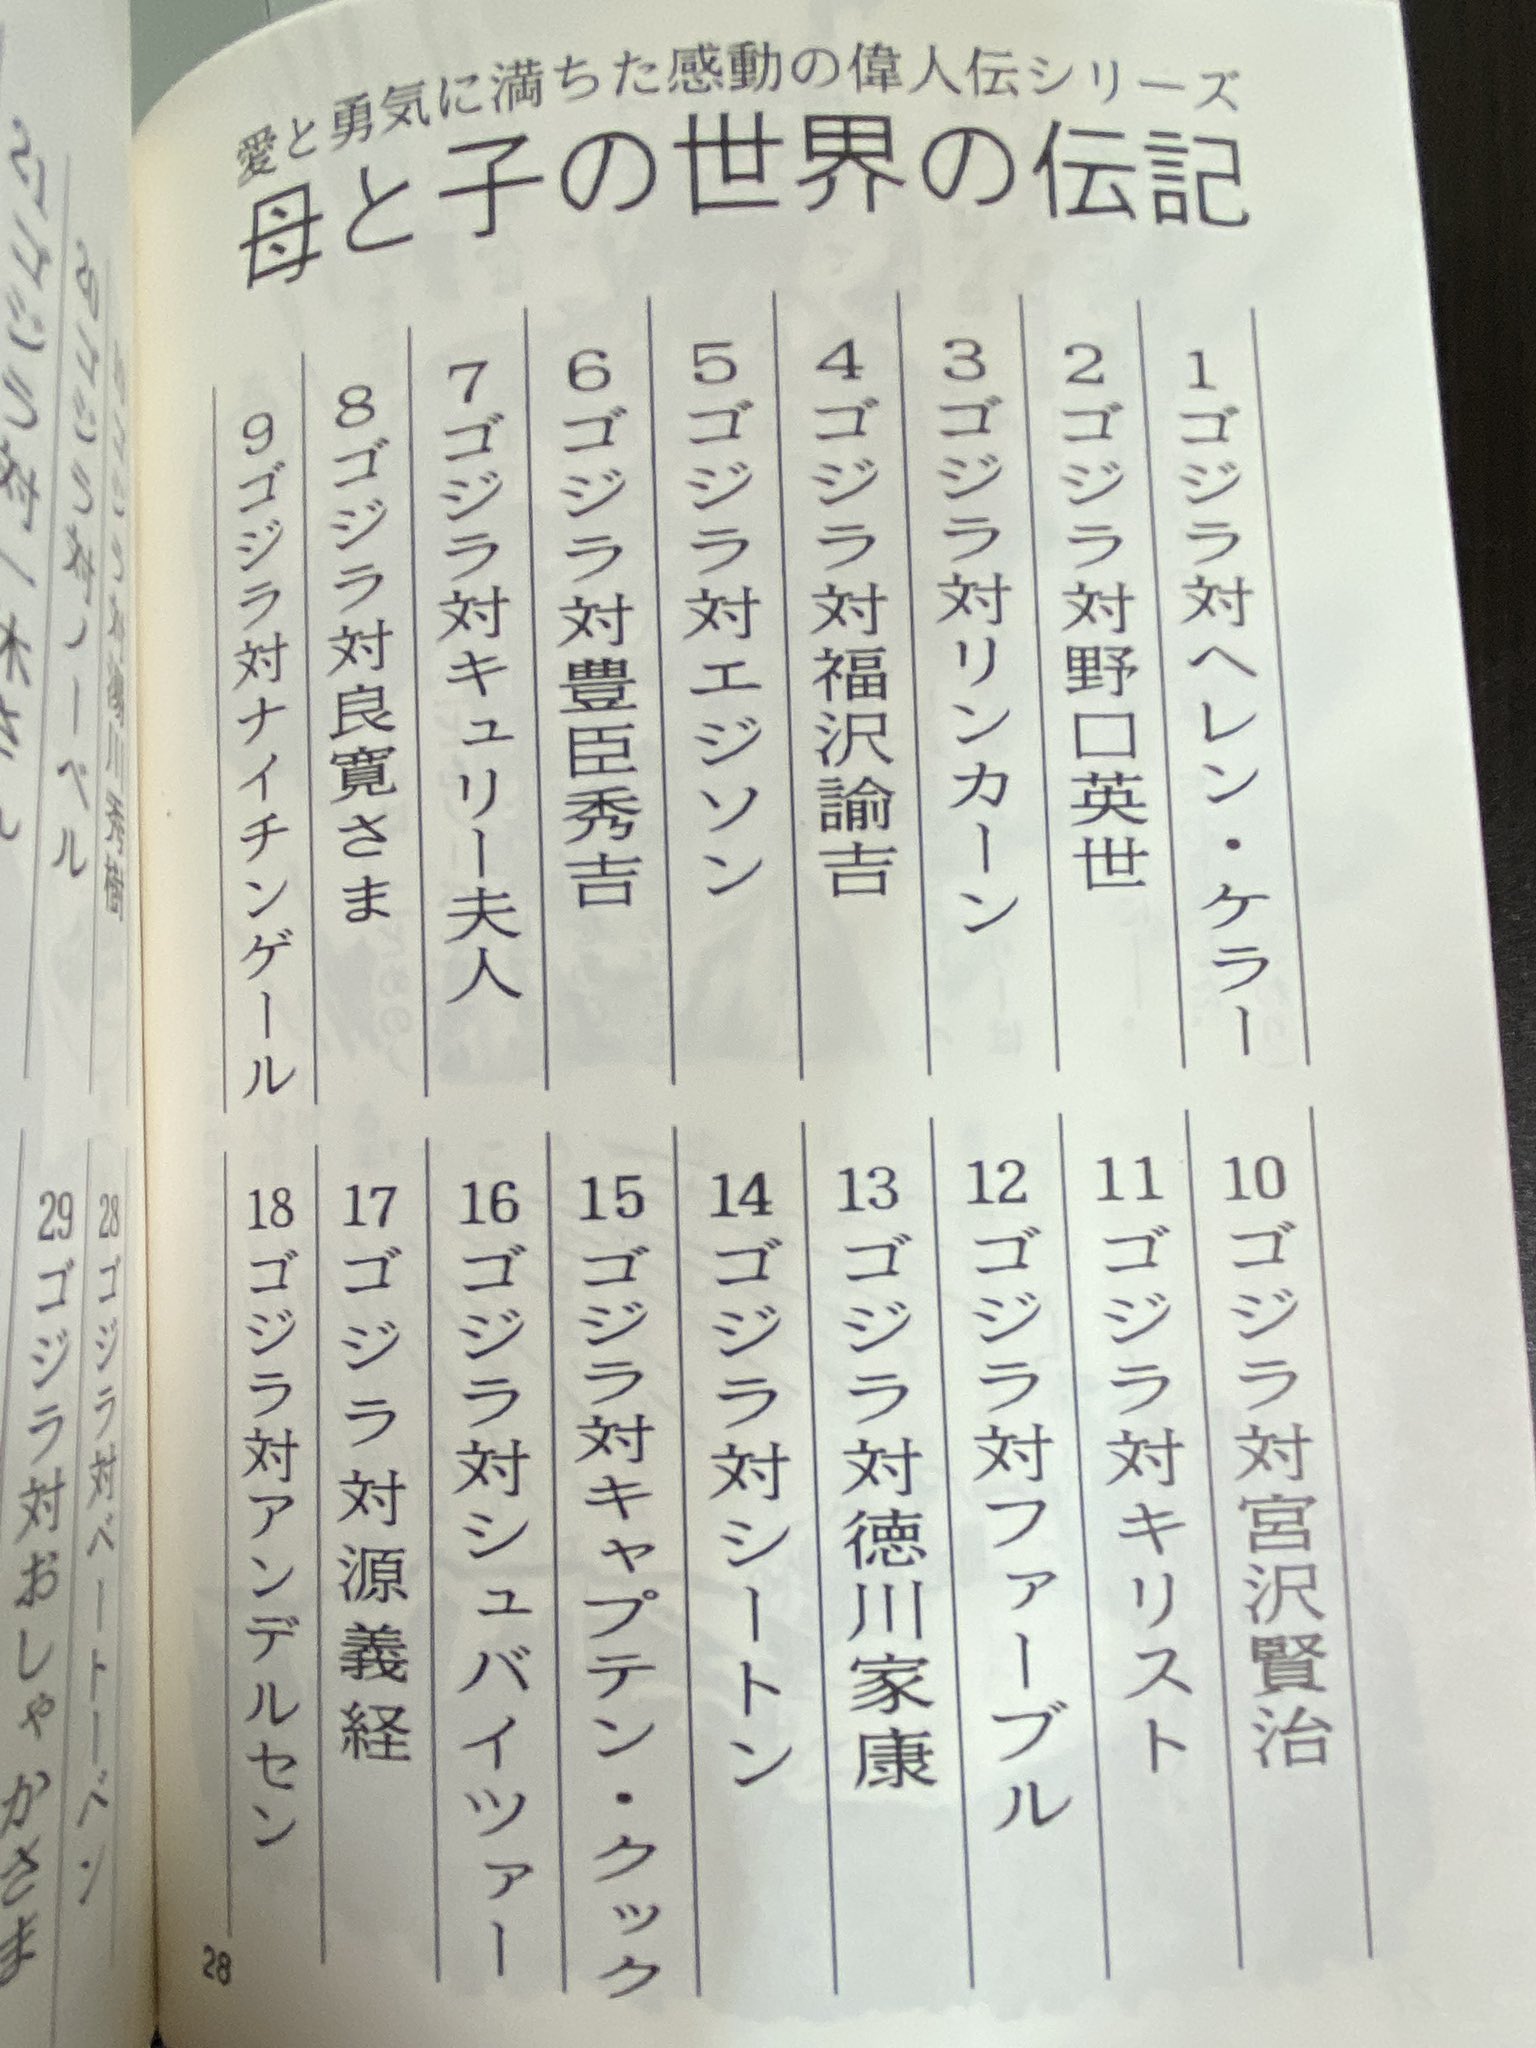 愛と勇気に満ちた感動の偉人伝シリーズ
母と子の世界の伝記
1ゴジラ対ヘレン・ケラー
2ゴジラ対野口英世
3ゴジラ対リンカーン
4ゴジラ対福沢諭吉
5ゴジラ対エジソン
6ゴジラ対豊臣秀吉
7ゴジラ対キュリー夫人
8ゴジラ対良寛さま
9ゴジラ対ナイチンゲール
10ゴジラ対宮沢賢治
11ゴジラ対キリスト
12ゴジラ対ファーブル
13ゴジラ対徳川家康
14ゴジラ対シートン
15ゴジラ対キャプテン・クック
16ゴジラ対シュバイツァー
17ゴジラ対源義経
18ゴジラ対アンデルセン
28
ゴジラ対ノーベル
28ゴジラ対ベートーベン
29ゴジラ対おしゃかさま